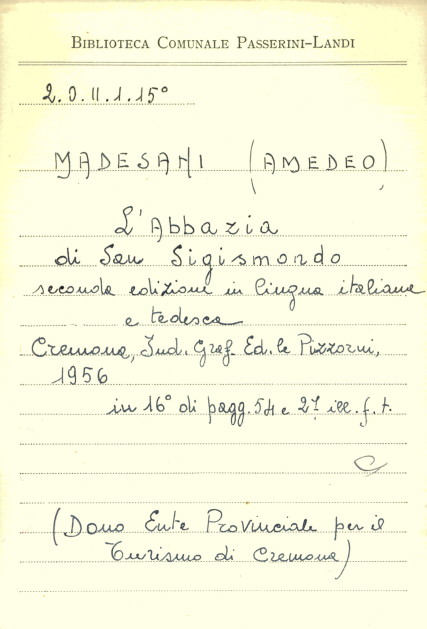 BIBLIOTECA COMUNALE PASSERINI-LANDI
2.O.II.1.15°
MADESANI (AMEDEO)
L'Abbazia
di San Sigismondo
seconda edizione in lingua italiana
e tedesca
Cremona, Ind. Graf. Ed.le Pizzorni,
1956
in 16° di pagg. 54 e 27 ill. f. t.
(Dono Ente Provinciale per il
Turismo di Cremona)